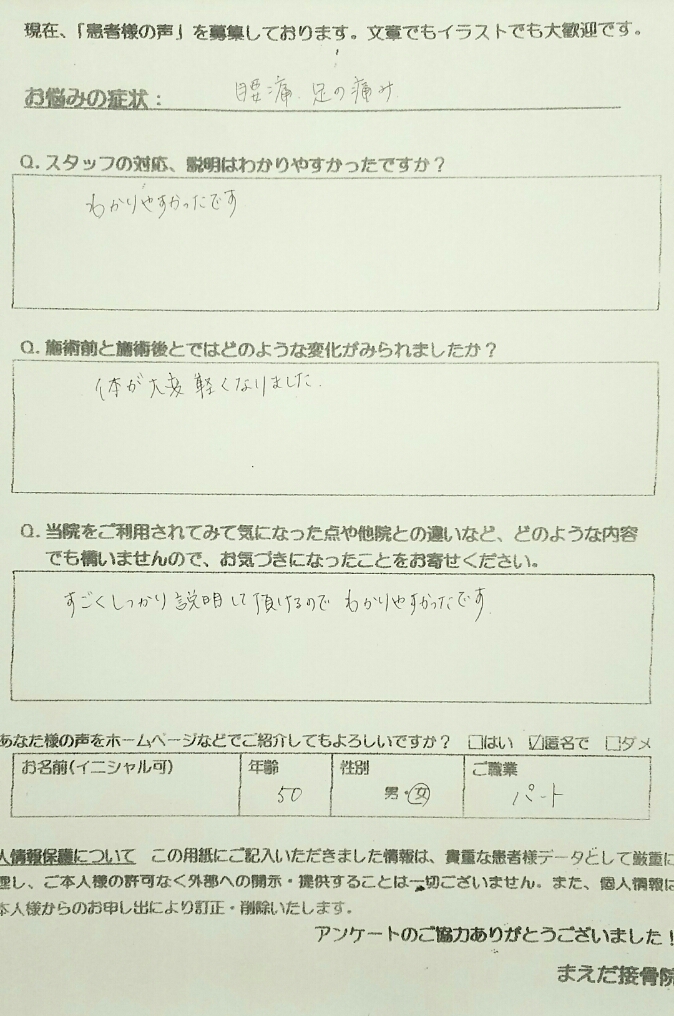 現在、「患者様の声」を募集しております。文章でもイラストでも大歓迎です。
お悩みの症状： 腰痛、足の痛み
Q. スタッフの対応、説明はわかりやすかったですか？
わかりやすかったです
Q. 施術前と施術後とではどのような変化がみられましたか？
体が大変軽くなりました。
Q. 当院をご利用されてみて気になった点や他院との違いなど、どのような内容
でも構いませんので、お気づきになったことをお寄せください。
すごくしっかり説明して頂けるのでわかりやすかったです
あなた様の声をホームページなどでご紹介してもよろしいですか？ □はい ☑匿名で □ダメ
お名前（イニシャル可） 年齢 性別 ご職業
50 男・女 パート
人情報保護について この用紙にご記入いただきました情報は、貴重な患者様データとして厳重に
理し、ご本人様の許可なく外部への開示・提供することは一切ございません。また、個人情報は
本人様からのお申し出により訂正・削除いたします。
アンケートのご協力ありがとうございました！
まえだ接骨院